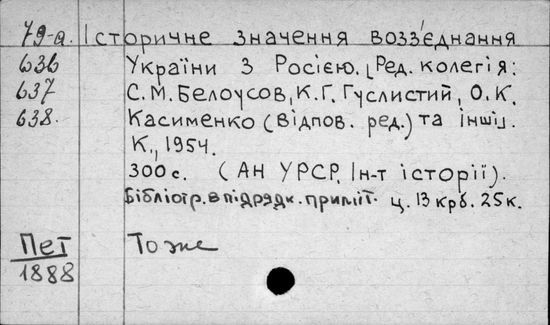 79-а. Історичне значення возз'єднання
636 України з Росією. [Ред. колегія:
637 С.М. Белоусов, К.Г. Гуслистий, О.К.
638. Касименко (відпов. ред.) та інші].
К., 1954.
300 с. (АН УРСР. Ін-т історії).
Бібліогр. в підрядк. приміт. ц. 13 крб. 25 к.
Пет То же
1888